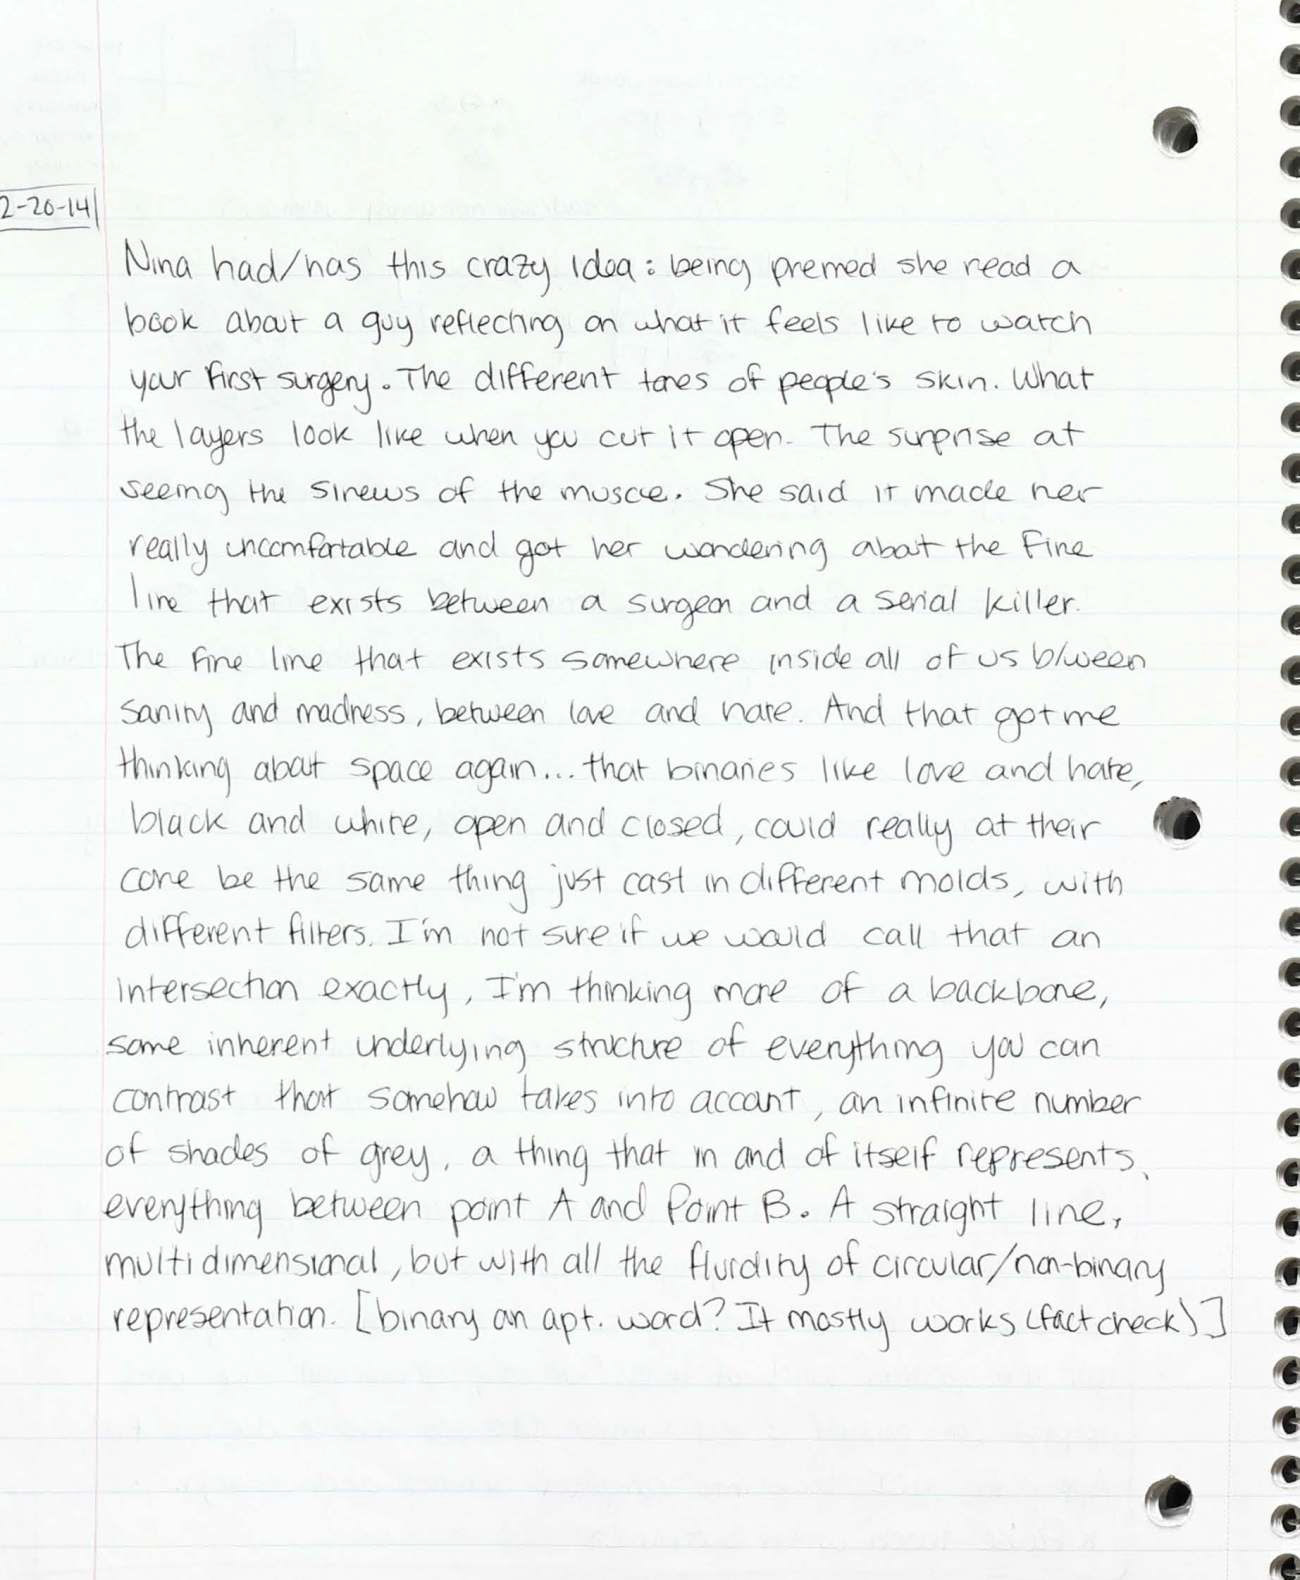 2-20-14
Nina had/has this crazy idea: being premed she read a
book about a guy reflecting on what it feels like to watch
your first surgery. The different tones of people's skin. What
the layers look like when you cut it open. The surprise at
seeing the sinews of the muscle. She said it made her
really uncomfortable and got her wondering about the fine
line that exists between a surgeon and a serial killer.
The fine line that exists somewhere inside all of us b/ween
sanity and madness, between love and hate. And that got me
thinking about space again... that binaries like love and hate,
black and white, open and closed, could really at their
core be the same thing just cast in different molds, with
different filters. I'm not sure if we would call that an
intersection exactly, I'm thinking more of a backbone,
some inherent underlying structure of everything you can
contrast that somehow takes into account, an infinite number
of shades of grey, a thing that in and of itself represents
everything between point A and Point B. A straight line,
multidimensional, but with all the fluidity of circular/non-binary
representation. [binary an apt. word? It mostly works (fact check)]